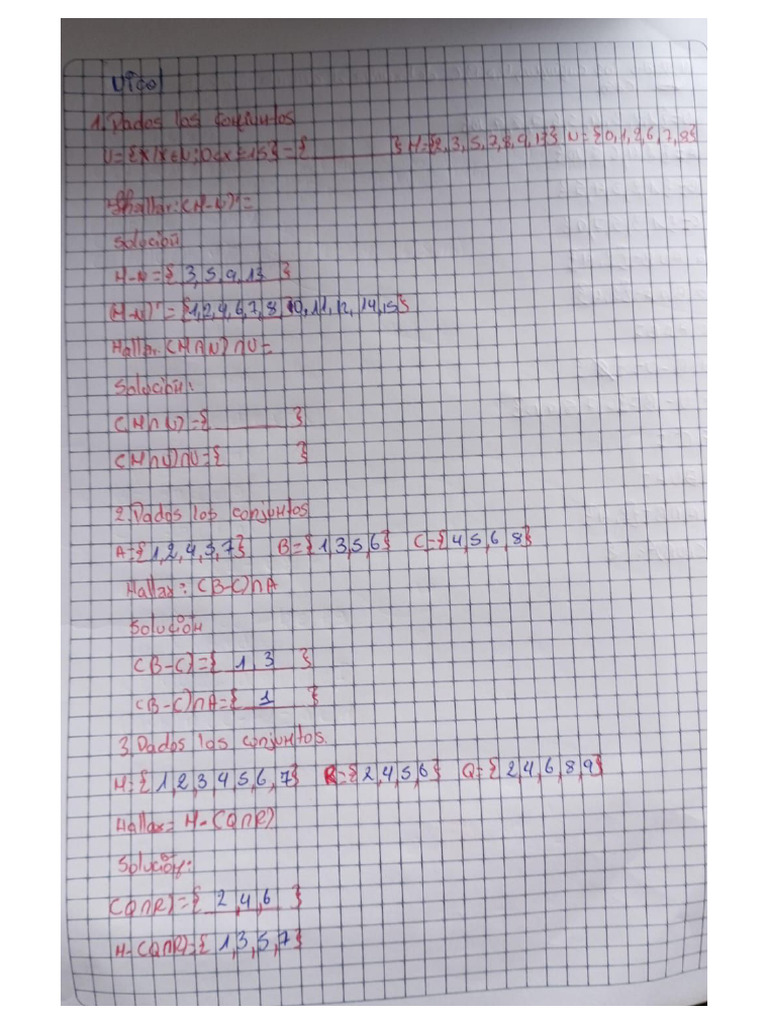 1. Dados los conjuntos
U={x/x∈N; 0<x≤15}={ } M={2,3,5,7,8,9,13} N={0,1,2,6,7,8}
hallar: (M-N)'=
Solución
M-N={3,5,9,13}
(M-N)'={1,2,4,6,7,8,10,11,12,14,15}
Hallar: (M∩N)∩U=
Solución:
(M∩N)={ }
(M∩N)∩U={ }
2. Dados los conjuntos
A={1,2,4,5,7} B={1,3,5,6} C={4,5,6,8}
Hallar: (B-C)∩A
Solución
(B-C)={ 1, 3 }
(B-C)∩A={ 1 }
3. Dados los conjuntos.
M={1,2,3,4,5,6,7} R={2,4,5,6} Q={2,4,6,8,9}
Hallar= M-(Q∩R)
Solución:
(Q∩R)={ 2,4,6 }
M-(Q∩R)={1,3,5,7}